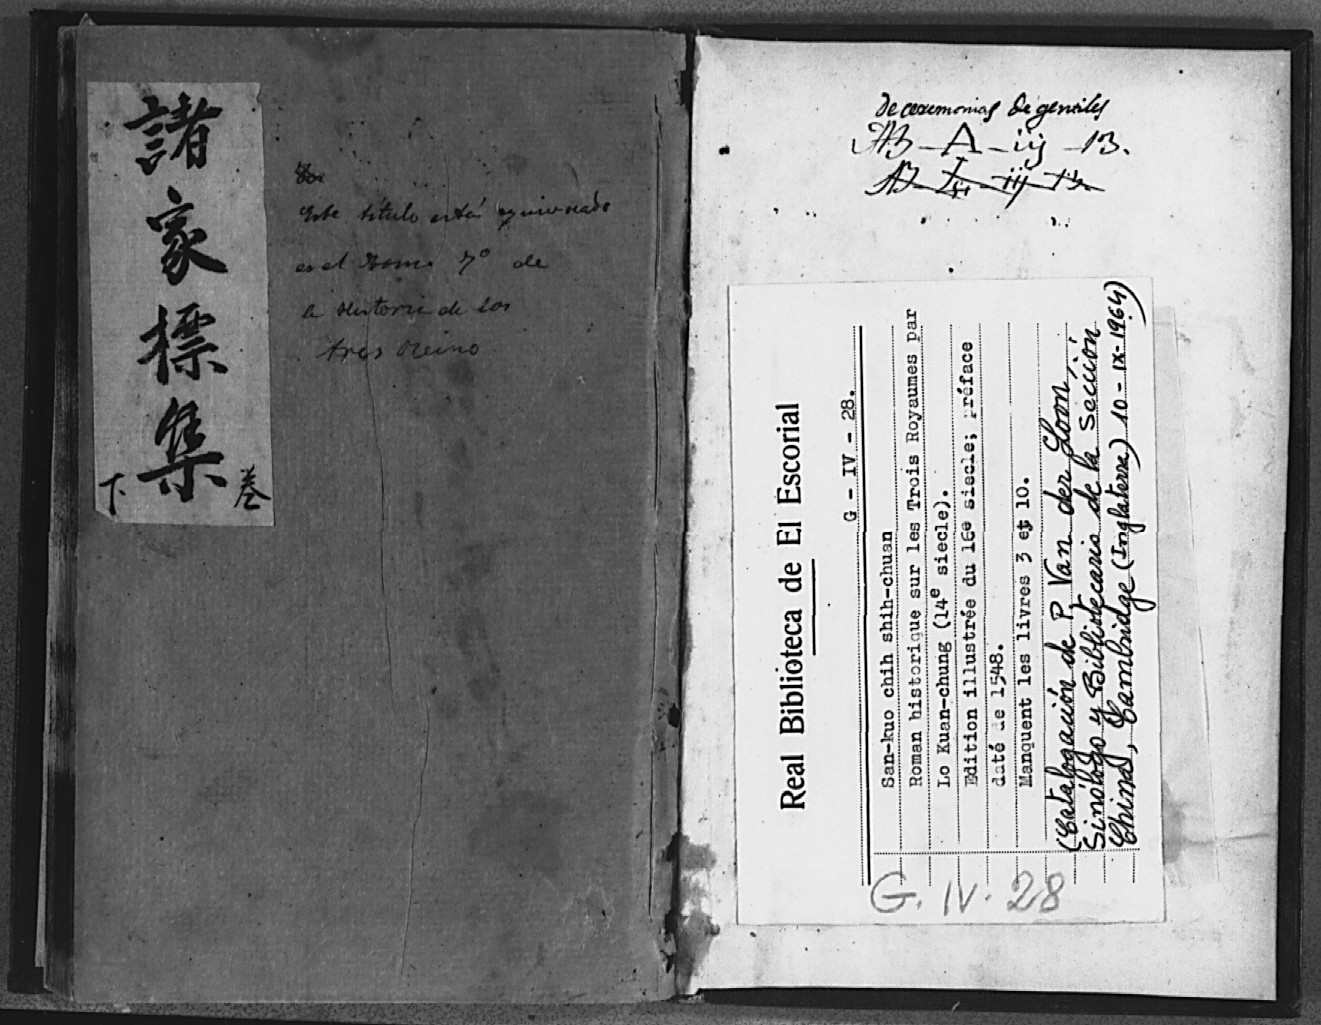 諸家標集
下 卷
Este título está equivocado
es el tomo 7º de
la Historia de los
tres Reino
De ceremonias de gentiles
A - iij - 13.
Real Biblioteca de El Escorial
G - IV - 28.
San-kuo chih shih-chuan
Roman historique sur les Trois Royaumes par
Lo Kuan-chung (14e siecle).
Edition illustrée du 16e siecle; préface
daté de 1548.
Manquent les livres 3 et 10.
(Catalogación de P. Van der Loon,
Sinólogo y Bibliotecario de la Sección
China, Cambridge (Inglaterra) 10-IX-1964)
G. IV. 28